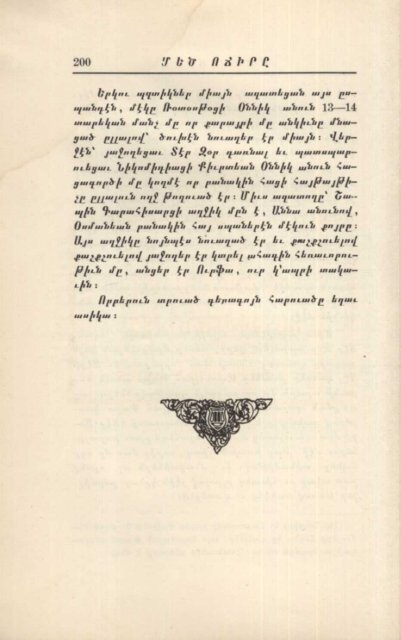 200 ՄԵԾ ՈՃԻՐԸ
Երկու պզտիկներ միայն ազատեցան այս ըս-
պանդէն, մէկը Ռոտոսթօցի Օննիկ անուն 13—14
տարեկան մանչ մը որ քարայրի մը անկիւնը մնա-
ցած ըլլալով՝ ծուխէն նուաղեր էր միայն։ Վեր-
ջէն՝ յաջողեցաւ Տէր Զօր դառնալ եւ պատսպար-
ուեցաւ Նիկոմիդիացի Քիւրտեան Օննիկ անուն հա-
ցագործի մը կողմէ որ բանակին հացի հայթայթի-
չը ըլլալուն ողջ թողուած էր։ Միւս ազատողը՝ Շա-
պին Գարահիսարցի աղջիկ մըն է, Աննա անունով,
Օսմանեան բանակին հայ սպաներէն մէկուն քոյրը։
Այս աղջիկը նոյնպէս նուաղած էր եւ քաշքշուելով
քաշքշուելով յաջողեր էր կտրել ահագին հեռաւորու-
թիւն մը, անցեր էր Ուրֆա, ուր կ'ապրի տակա-
ւին։
Որբերուն տրուած գերագոյն հարուածը եղաւ
ասիկա։